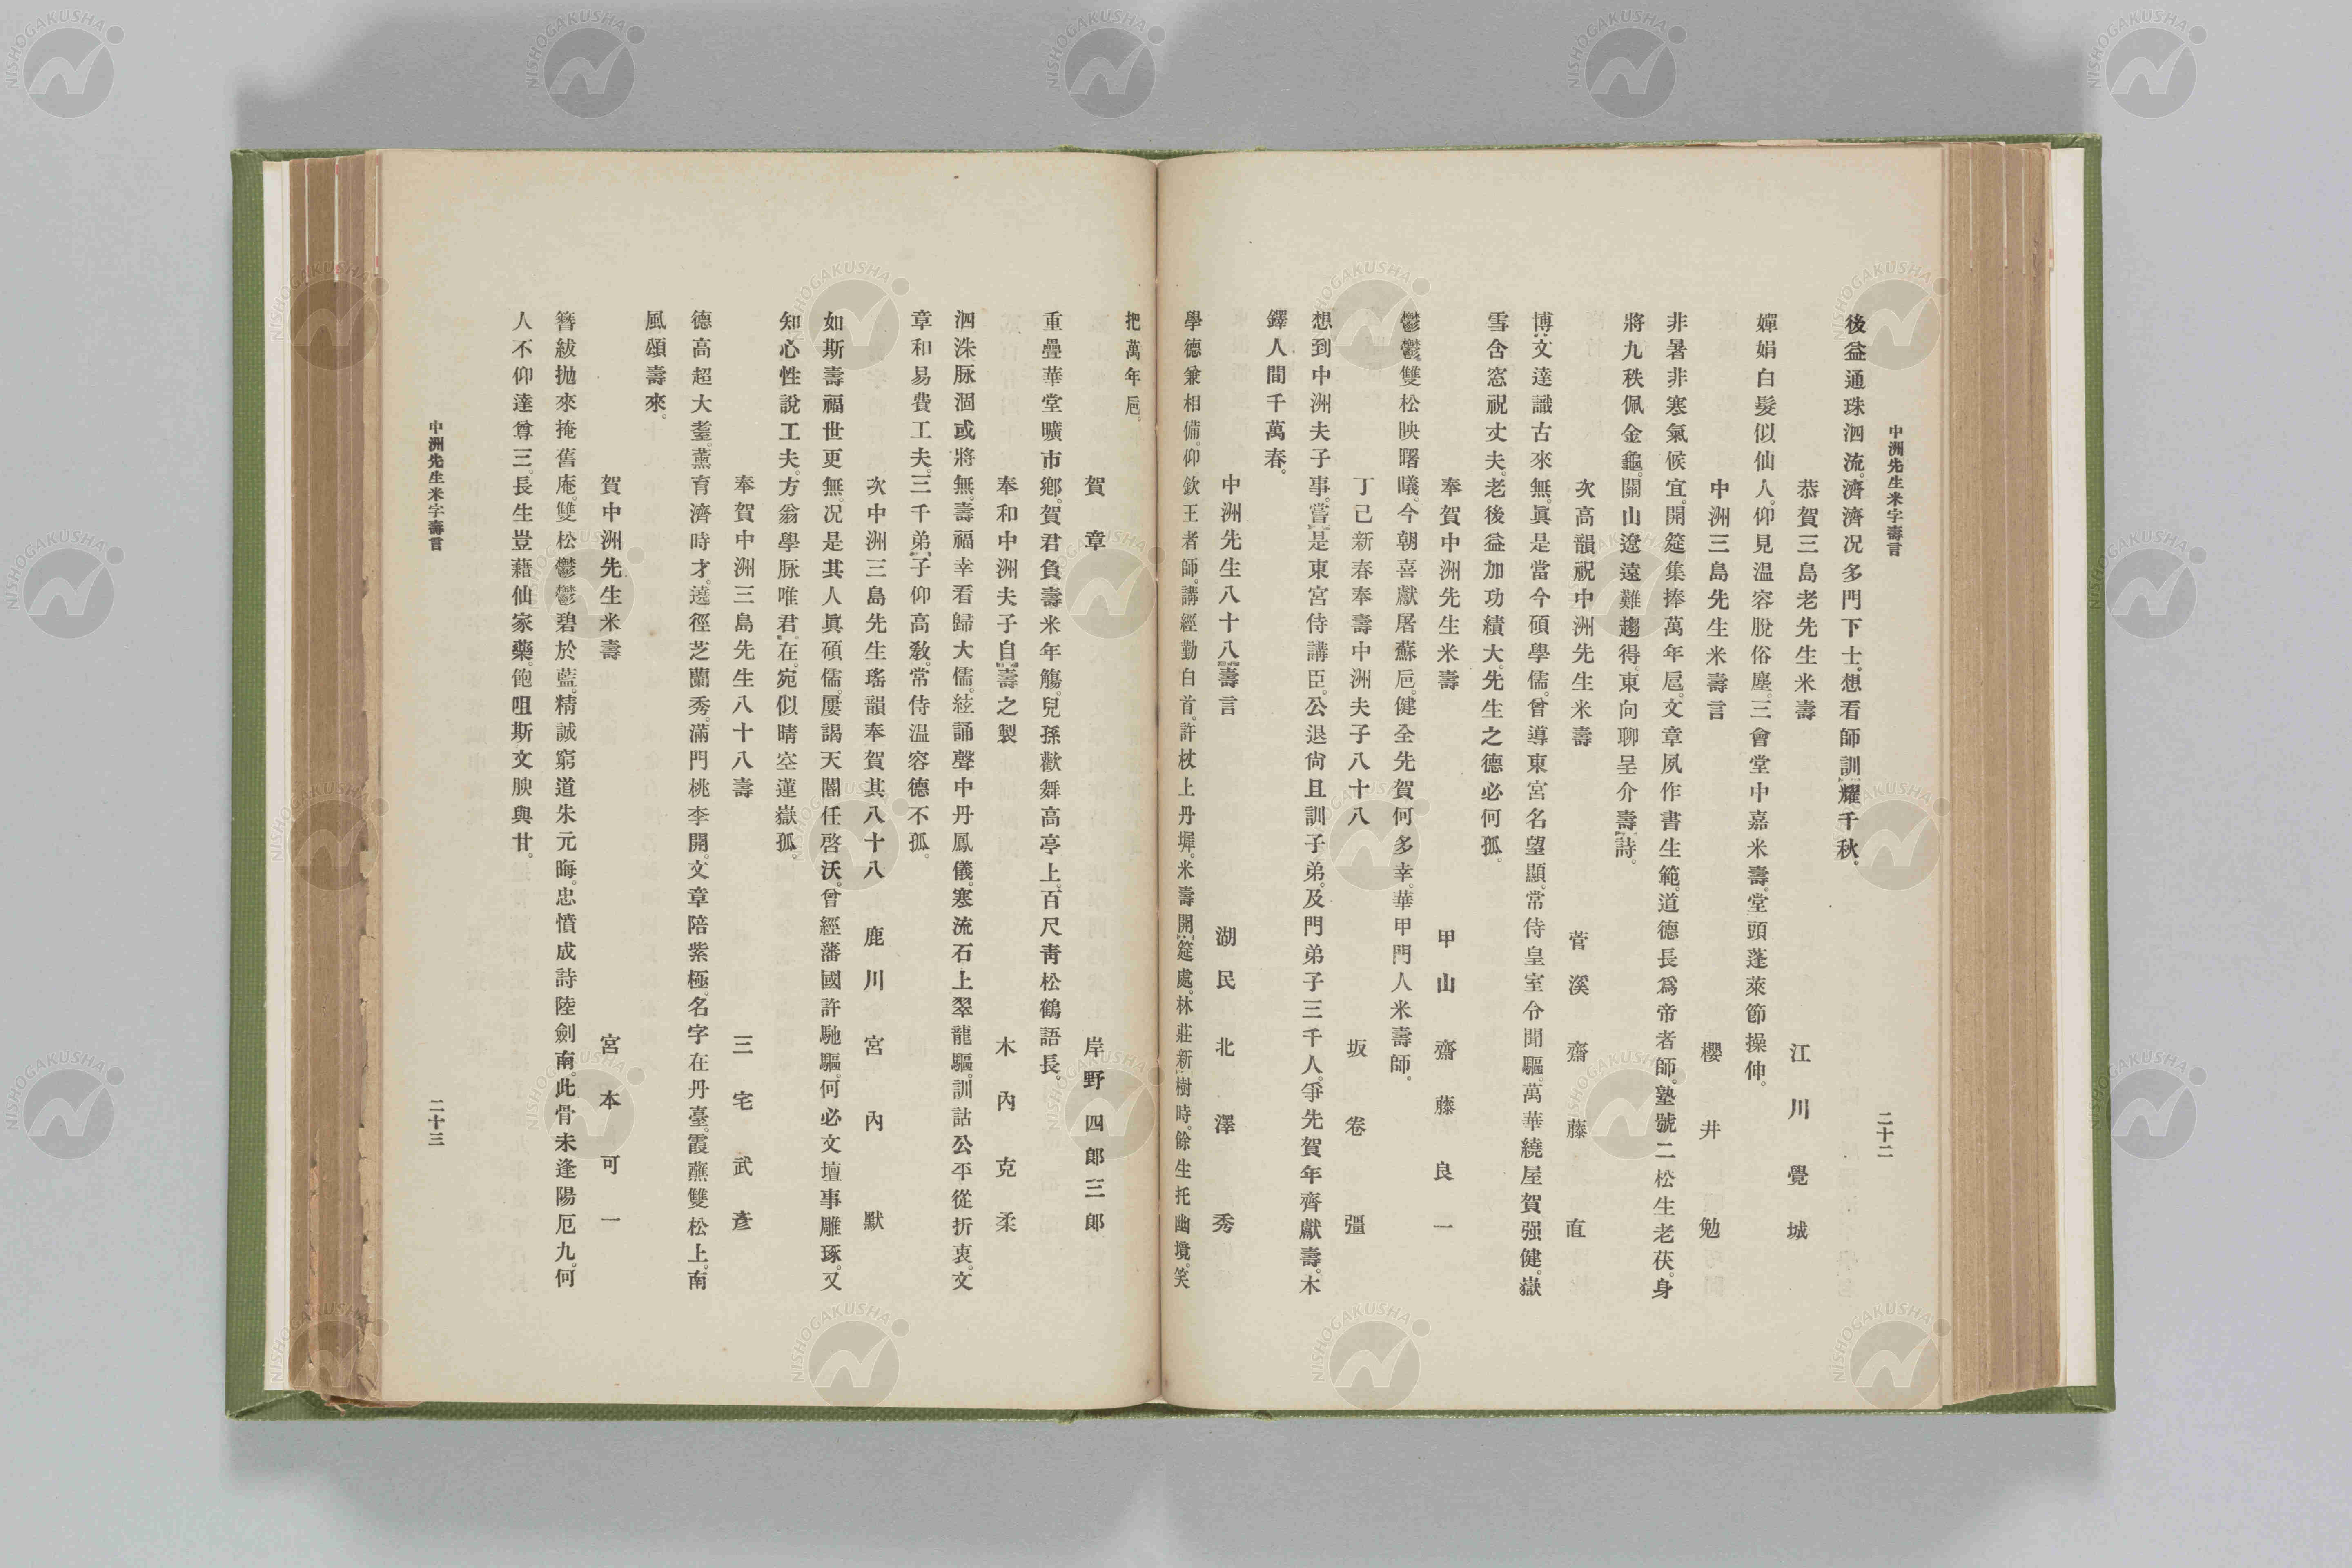 中洲先生米字壽言
二十二
後益通珠泗流。濟濟况多門下士。想看師訓耀千秋。
恭賀三島老先生米壽
江川覺城
嬋娟白髮似仙人。仰見温容脫俗塵。三會堂中嘉米壽。堂頭蓬萊節操伸。
中洲三島先生米壽言
櫻井勉
非暑非寒氣候宜。開筵集捧萬年巵。文章夙作書生範。道德長爲帝者師。塾號二松生老茯。身
將九秩佩金龜。關山遼遠難趨得。東向聊呈介壽詩。
次高韻祝中洲先生米壽
菅溪齋藤直
博文達識古來無。眞是當今碩學儒。曾導東宮名望顯。常侍皇室令聞驅。萬華繞屋賀强健。嶽
雪含窓祝丈夫。老後益加功績大。先生之德必何孤。
奉賀中洲先生米壽
甲山齋藤良一
鬱鬱雙松映曙曦。今朝喜獻屠蘇巵。健全先賀何多幸。華甲門人米壽師。
丁己新春奉壽中洲夫子八十八
坂卷彊
想到中洲夫子事。嘗是東宮侍講臣。公退尙且訓子弟。及門弟子三千人。爭先賀年齊獻壽。木
鐸人間千萬春。
中洲先生八十八壽言
湖民北澤秀
學德兼相備。仰欽王者師。講經勤白首。許杖上丹墀。米壽開筵處。林莊新樹時。餘生托幽境。笑
把萬年巵。
賀章
岸野四郎三郎
重疊華堂曠市鄕。賀君負壽米年觴。兒孫歡舞高亭上。百尺靑松鶴語長。
奉和中洲夫子自壽之製
木內克柔
泗洙脉涸或將無。壽福幸看歸大儒。絃誦聲中丹鳳儀。寒流石上翠龍驅。訓詁公平從折衷。文
章和易費工夫。三千弟子仰高敎。常侍温容德不孤。
次中洲三島先生瑤韻奉賀其八十八
鹿川宮內默
如斯壽福世更無。况是其人眞碩儒。屢謁天閽任啓沃。曾經藩國許馳驅。何必文壇事雕琢。又
知心性說工夫。方翁學脉唯君在。宛似晴空蓮嶽孤。
奉賀中洲三島先生八十八壽
三宅武彥
德高超大耋。薰育濟時才。遶徑芝蘭秀。滿門桃李開。文章陪紫極。名字在丹臺。霞蘸雙松上。南
風頌壽來。
賀中洲先生米壽
宮本可一
簪紱抛來掩舊庵。雙松鬱鬱碧於藍。精誠窮道朱元晦。忠憤成詩陸劍南。此骨未逢陽厄九。何
人不仰達尊三。長生豈藉仙家藥。飽咀斯文腴與甘。
中洲先生米字壽言
二十三
NISHOGAKUSHA